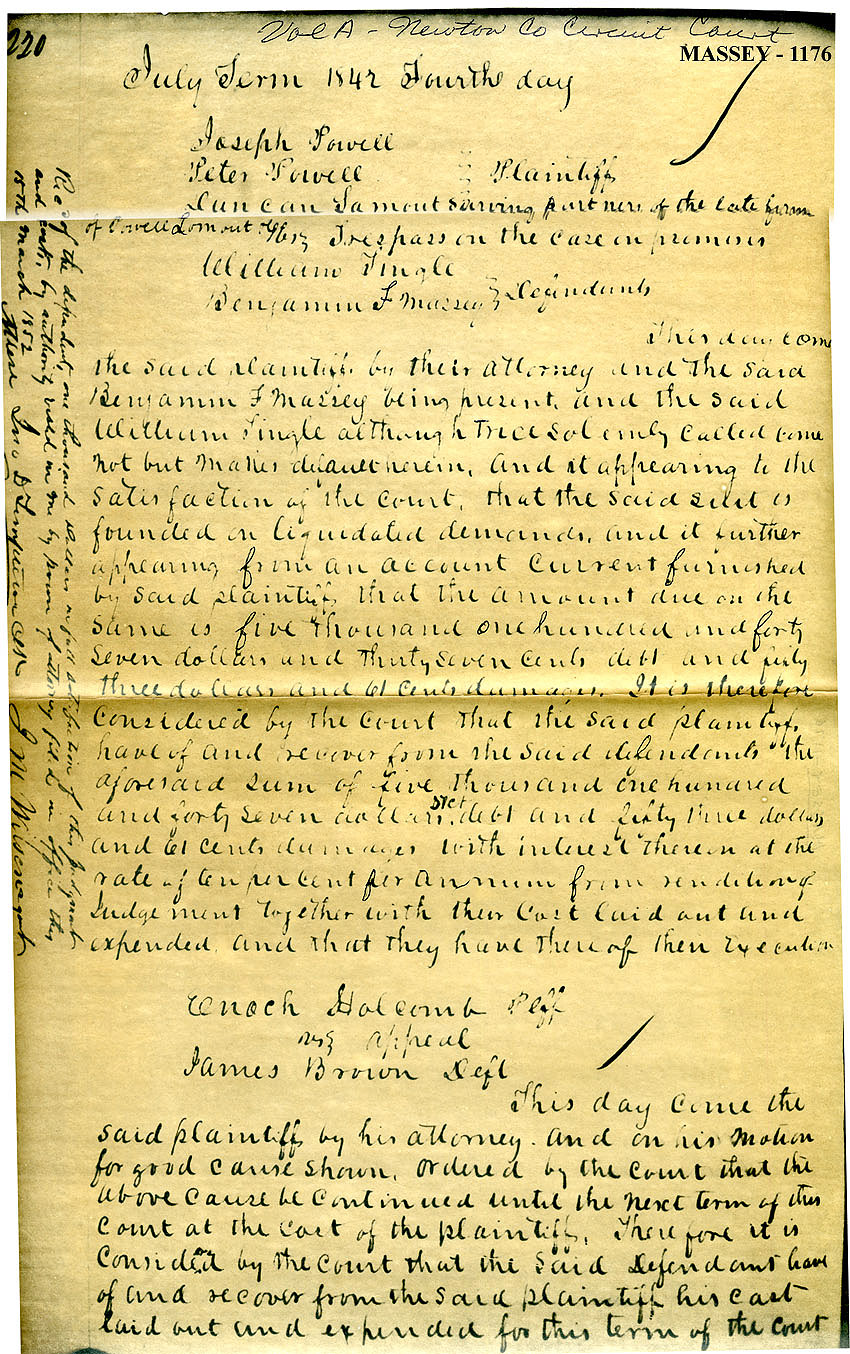 220
Vol A - Newton Co Circuit Court
MASSEY - 1176
July Term 1842 Fourth day
Joseph Powell
Peter Powell Plaintiff
Duncan Lamont Surviving partners of the late firm
of Powell Lamont &Co
vs Trespass on the case in promises
William Tingle
Benjamin F Massey Defendants
This day come
the said plaintiffs by their attorney and the said
Benjamin F Massey being present, and the said
William Tingle although trice solemly called come
not but makes default herein, and it appearing to the
satisfaction of the court, that the said suit is
founded on liquidated demands, and it further
appearing from an account current furnished
by said plaintiffs that the amount due on the
same is five thousand one hundred and forty
seven dollars and thirty seven cents debt and fifty
three dollars and 61 cents damages. It is therefore
considered by the court that the said plaintiffs
have of and recover from the said defendants the
aforesaid sum of five thousand one hundred
and forty seven dollars 37ct debt and fifty three dollars
and 61 cents damages with interest thereon at the
rate of ten per cent per annum from rendition of
Judgement together with their Cost laid out and
expended, and that they have there of their Execution
Enoch Holcomb Plff
vs appeal
James Brown Deft
This day come the
said plaintiff by his attorney. and on his Motion
for good cause shown, ordered by the court that the
above cause be continued until the next term of this
court at the cost of the plaintiff, Therefore it is
Considered by the court that the said Defendant have
of and recover from the said plaintiff his cost
laid out and expended for this term of the court
Recd of the defendants one thousand dollars in full satisfaction of this judgment
and costs, by authority vested in me by power of attorney filed in office this
15th March 1852
Attest Jno D Clk J M